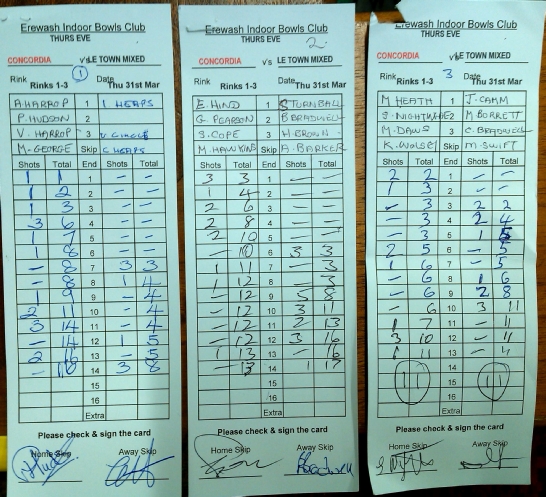 Erewash Indoor Bowls Club
THURS EVE
CONCORDIA v's LE TOWN MIXED
Rink 1 Date
Rinks 1-3 Thu 31st Mar
A HARROP 1 I. HEAPS
P. HUDSON 2
V. HARROP 3
M. GEORGE Skip C HEAPS
Shots Total End Shots Total
1 1 1 - -
1 2 2 - -
1 3 3 - -
3 6 4 - -
1 7 5 - -
1 8 6 - -
- 8 7 3 3
- 8 8 1 4
1 9 9 - 4
2 11 10 - 4
3 14 11 - 4
- 14 12 1 5
13 - 5
14 3 8
15
16
Extra
Please check & sign the card
Home Skip Away Skip
Erewash Indoor Bowls Club
THURS EVE
2.
CONCORDIA v's LE TOWN MIXED
Rink Date
Rinks 1-3 Thu 31st Mar
E. HIND 1 S TURNBALL
G. PEARSON 2 BRADWELL
S. COPE 3 H. BROWN
M. HAWKINS Skip A. BARKER
Shots Total End Shots Total
3 3 1 - -
1 4 2 - -
2 6 3 - -
2 8 4 - -
2 10 5 - -
- 10 6 3 3
1 11 7 - 3
1 12 8 - 3
- 12 9 5 8
- 12 10 3 11
- 12 11 2 13
- 12 12 3 16
1 13 13 - 16
- 13 14 1 17
15
16
Extra
Please check & sign the card
Home Skip Away Skip
Erewash Indoor Bowls Club
THURS EVE
CONCORDIA v's LE TOWN MIXED
Rink 3 Date
Rinks 1-3 Thu 31st Mar
M HEATH 1 J. CAMM
2 M BORRETT
M. DAWS 3 C. BRADWELL
Skip M. SWIFT
Shots Total End Shots Total
2 2 1 - -
1 3 2 - -
- 3 3 2 2
- 3 4 2 4
- 3 5 1 5
2 5 6 - 5
1 6 7 - 5
- 6 8 1 6
- 6 9 2 8
- 6 10 3 11
1 7 11 - 11
3 10 12 - 11
1 11 13 - 11
11 14 11
15
16
Extra
Please check & sign the card
Home Skip Away Skip